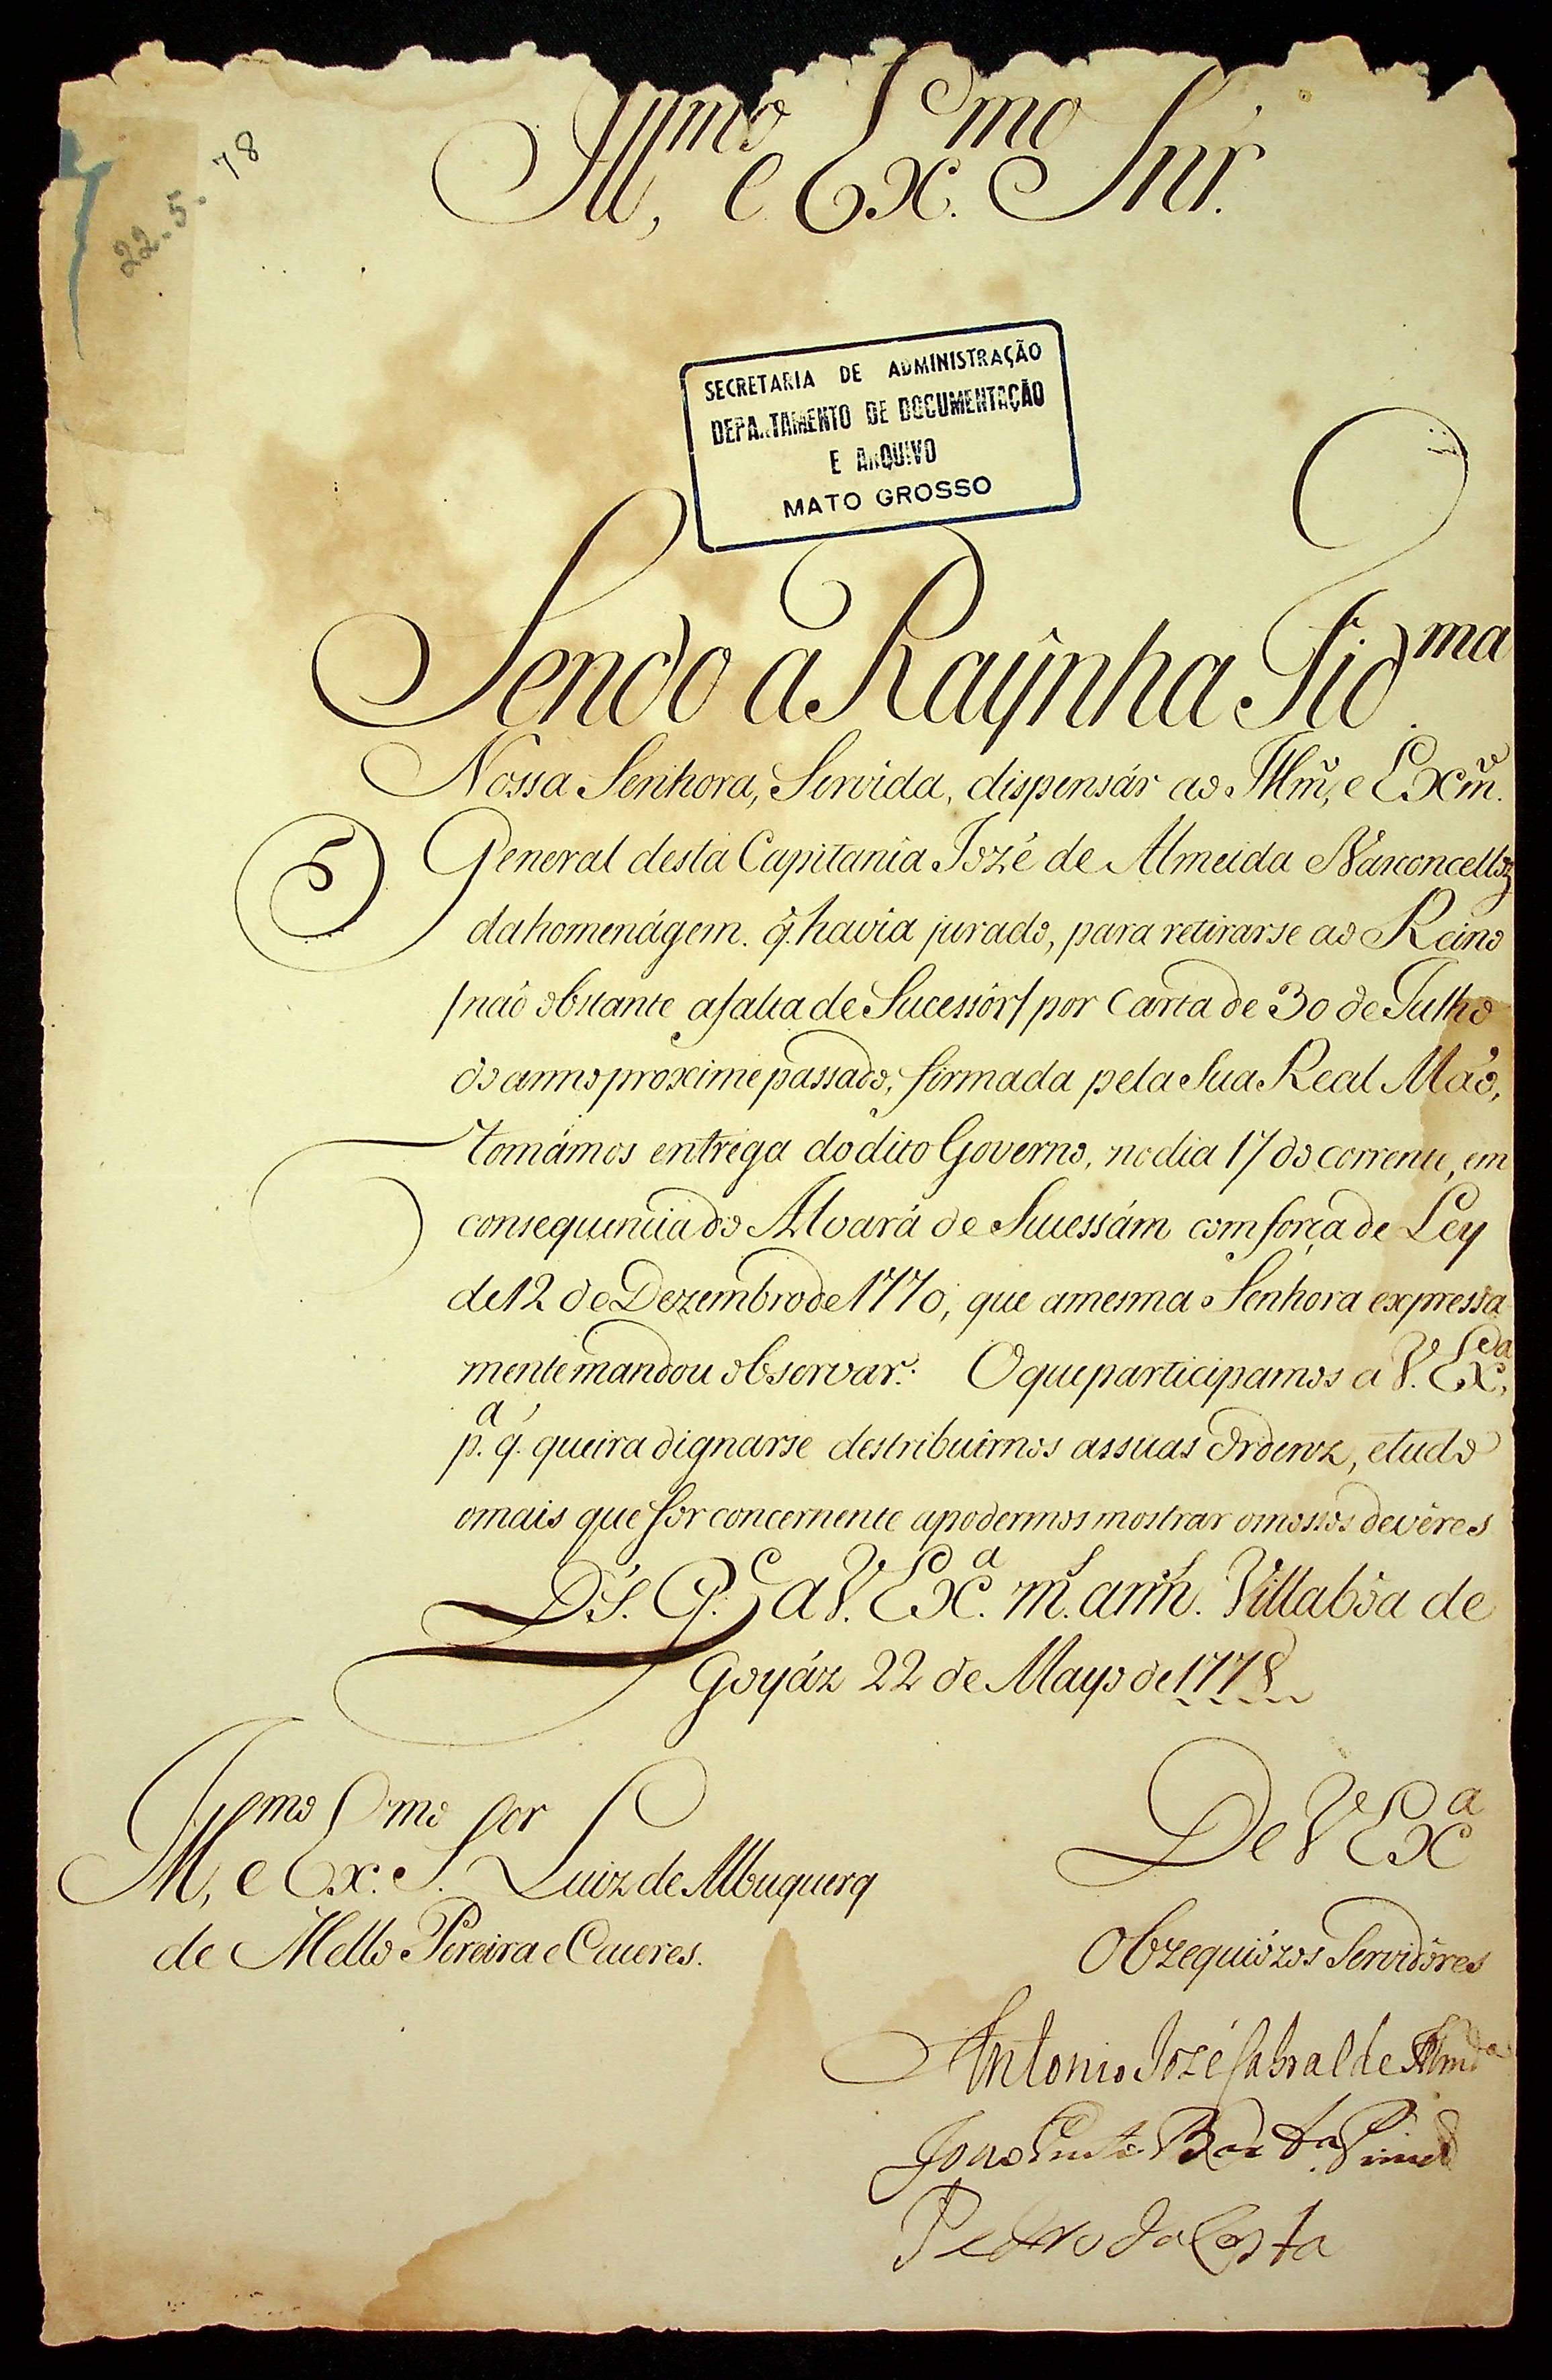 22.5.78
Ill,mo e Ex.mo Snr.
SECRETARIA DE ADMINISTRAÇÃO
DEPARTAMENTO DE DOCUMENTAÇÃO
E ARQUIVO
MATO GROSSO
Sendo a Raynha Fid.ma
Nossa Senhora, Servida, dispensár ao Illm,o e Exm.o
General desta Capitania Jozé de Almeida Vasconcelloz
da homenágem. q̃. havia jurado, para retirarse ao Reino
/naõ obstante a falta de Sucessôr/ por Carta de 30 de Julho
do anno proximè passado, firmada pela Sua Real Maõ,
tomámos entrega do dito Governo, no dia 17 do corrente, em
consequencia do Alvará de Sucessám com força de Ley
de 12 de Dezembro de 1770, que a mesma Senhora expressa
mente mandou observar. O que participamos a V. Ex.ca
p.a q. queira dignarse destribuirnos as suas Ordenz, e tudo
o mais que for concernente a podermos mostrar o nossos devêres
D.s G.e a V. Ex.a m.s ann.s Villabôa de
Goyáz 22 de Mayo de 1778
Ill,mo e Ex.mo S.or Luiz de Albuquerq
de Mello Pereira e Caceres.
De V Ex.a
Obzequiózos Servidôres
Antonio Jozé Cabral de Almda
João Pinto Barboza Pimel
Pedro da Costa